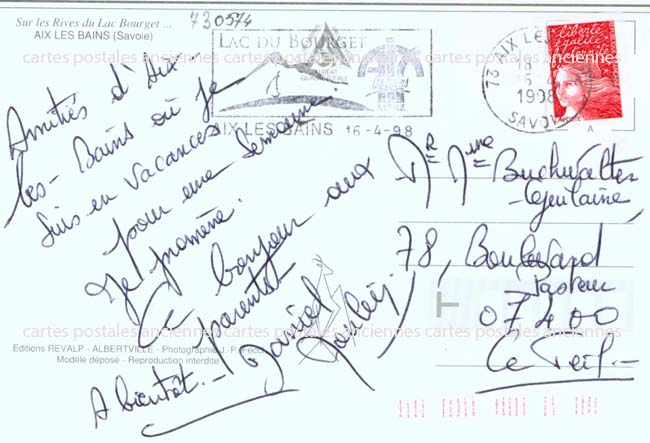 Sur les Rives du Lac Bourget ...
AIX LES BAINS (Savoie)
730574
LAC DU BOURGET
AIX LES BAINS 16-4-98
73 AIX LE
16
1998
SAVOIE
liberté
égalité
Amitiés d'Aix-
les-Bains où je
suis en vacances
pour une semaine.
Je promène.
Le bonjour aux
parents
A bientôt. - Daniel
Mr Mme Buchwalter
Ghislaine,
78, Boulevard
Pasteur
07400
Le Teil.-
Editions REVALP - ALBERTVILLE - Photographie J.-P.
Modèle déposé - Reproduction interdite
cartes postales anciennes cartes postales anciennes cartes postales anciennes
cartes postales anciennes cartes postales anciennes cartes postales anciennes